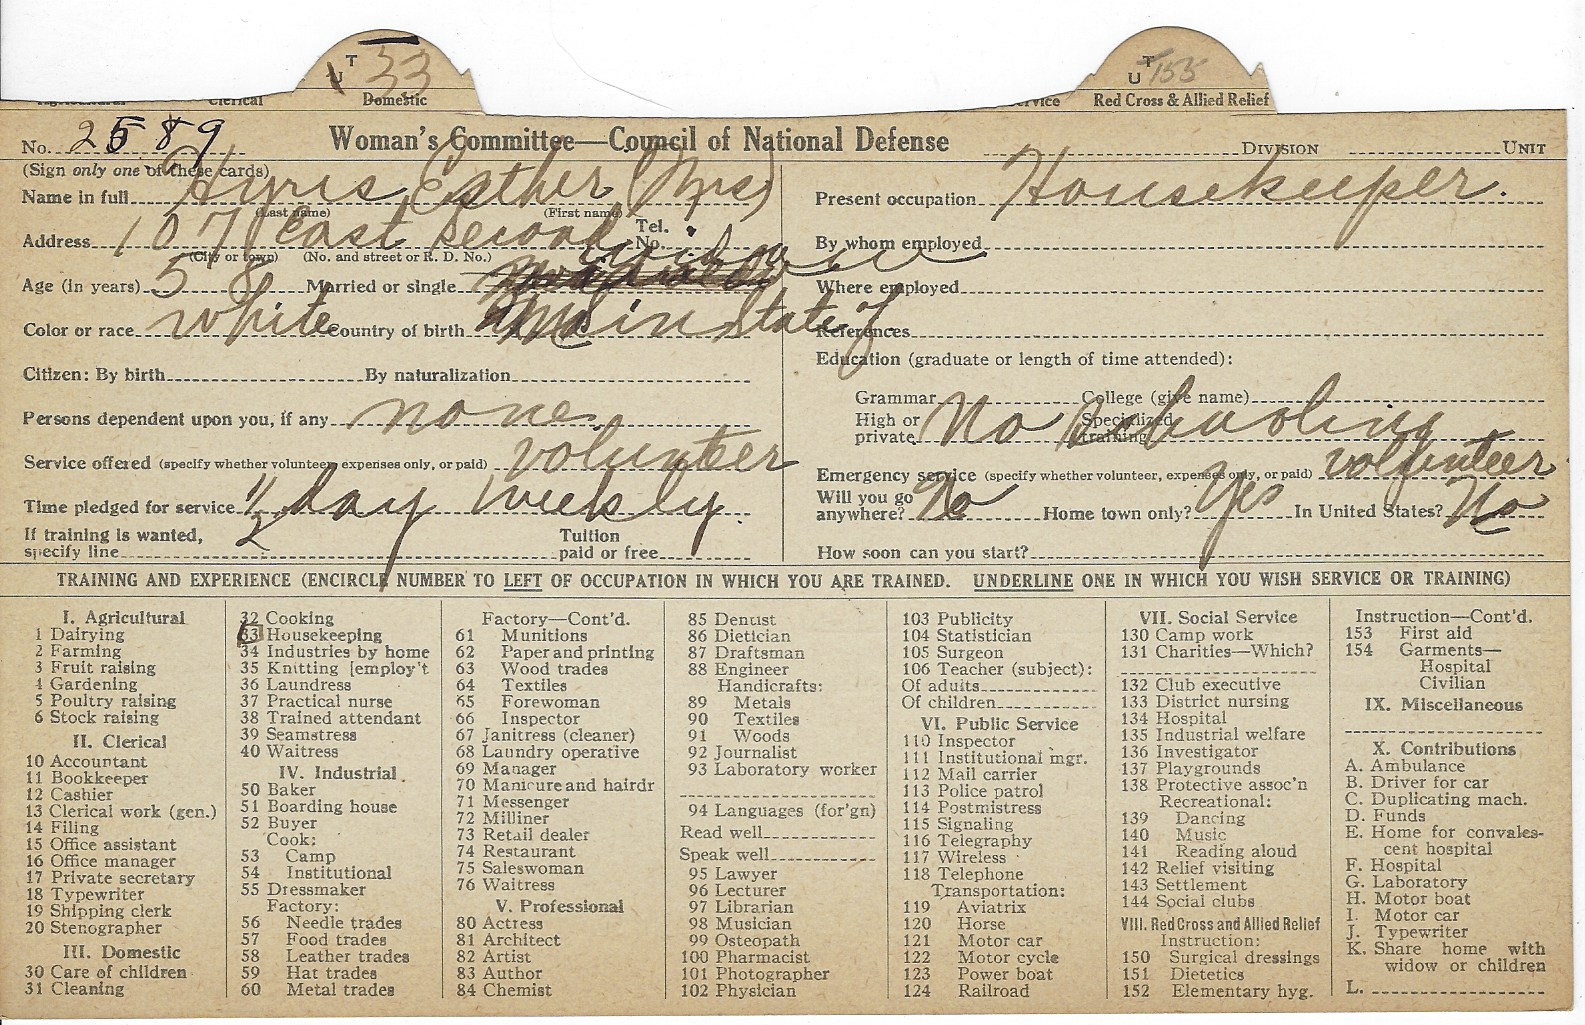 T 33 T 155
U U
Clerical Domestic Service Red Cross & Allied Relief
No. 2589 Woman's Committee—Council of National Defense DIVISION UNIT
(Sign only one of these cards)
Name in full Hyris Esther (Mrs) Present occupation Housekeeper.
(Last name) (First name)
Address 107 East Second Tel. No. By whom employed
(City or town) (No. and street or R. D. No.) widow
Age (in years) 58 Married or single Where employed
Color or race white Country of birth Main State of References
Education (graduate or length of time attended):
Citizen: By birth By naturalization
Grammar College (give name)
Persons dependent upon you, if any none. High or private No Schooling Specialized training
Service offered (specify whether volunteer, expenses only, or paid) volunteer Emergency service (specify whether volunteer, expenses only, or paid) volunteer
Time pledged for service 1/2 day weekly. Will you go anywhere? No Home town only? Yes In United States? No
If training is wanted, specify line Tuition paid or free How soon can you start?
TRAINING AND EXPERIENCE (ENCIRCLE NUMBER TO LEFT OF OCCUPATION IN WHICH YOU ARE TRAINED. UNDERLINE ONE IN WHICH YOU WISH SERVICE OR TRAINING)
I. Agricultural
1 Dairying
2 Farming
3 Fruit raising
4 Gardening
5 Poultry raising
6 Stock raising
II. Clerical
10 Accountant
11 Bookkeeper
12 Cashier
13 Clerical work (gen.)
14 Filing
15 Office assistant
16 Office manager
17 Private secretary
18 Typewriter
19 Shipping clerk
20 Stenographer
III. Domestic
30 Care of children
31 Cleaning
32 Cooking
33 Housekeeping
34 Industries by home
35 Knitting [employ't
36 Laundress
37 Practical nurse
38 Trained attendant
39 Seamstress
40 Waitress
IV. Industrial
50 Baker
51 Boarding house
52 Buyer
Cook:
53 Camp
54 Institutional
55 Dressmaker
Factory:
56 Needle trades
57 Food trades
58 Leather trades
59 Hat trades
60 Metal trades
Factory—Cont'd.
61 Munitions
62 Paper and printing
63 Wood trades
64 Textiles
65 Forewoman
66 Inspector
67 Janitress (cleaner)
68 Laundry operative
69 Manager
70 Manicure and hairdr
71 Messenger
72 Milliner
73 Retail dealer
74 Restaurant
75 Saleswoman
76 Waitress
V. Professional
80 Actress
81 Architect
82 Artist
83 Author
84 Chemist
85 Dentist
86 Dietician
87 Draftsman
88 Engineer
Handicrafts:
89 Metals
90 Textiles
91 Woods
92 Journalist
93 Laboratory worker
94 Languages (for'gn)
Read well
Speak well
95 Lawyer
96 Lecturer
97 Librarian
98 Musician
99 Osteopath
100 Pharmacist
101 Photographer
102 Physician
103 Publicity
104 Statistician
105 Surgeon
106 Teacher (subject):
Of adults
Of children
VI. Public Service
110 Inspector
111 Institutional mgr.
112 Mail carrier
113 Police patrol
114 Postmistress
115 Signaling
116 Telegraphy
117 Wireless
118 Telephone
Transportation:
119 Aviatrix
120 Horse
121 Motor car
122 Motor cycle
123 Power boat
124 Railroad
VII. Social Service
130 Camp work
131 Charities—Which?
132 Club executive
133 District nursing
134 Hospital
135 Industrial welfare
136 Investigator
137 Playgrounds
138 Protective assoc'n
Recreational:
139 Dancing
140 Music
141 Reading aloud
142 Relief visiting
143 Settlement
144 Social clubs
VIII. Red Cross and Allied Relief
Instruction:
150 Surgical dressings
151 Dietetics
152 Elementary hyg.
Instruction—Cont'd.
153 First aid
154 Garments—
Hospital
Civilian
IX. Miscellaneous
X. Contributions
A. Ambulance
B. Driver for car
C. Duplicating mach.
D. Funds
E. Home for convales-
cent hospital
F. Hospital
G. Laboratory
H. Motor boat
I. Motor car
J. Typewriter
K. Share home with
widow or children
L.